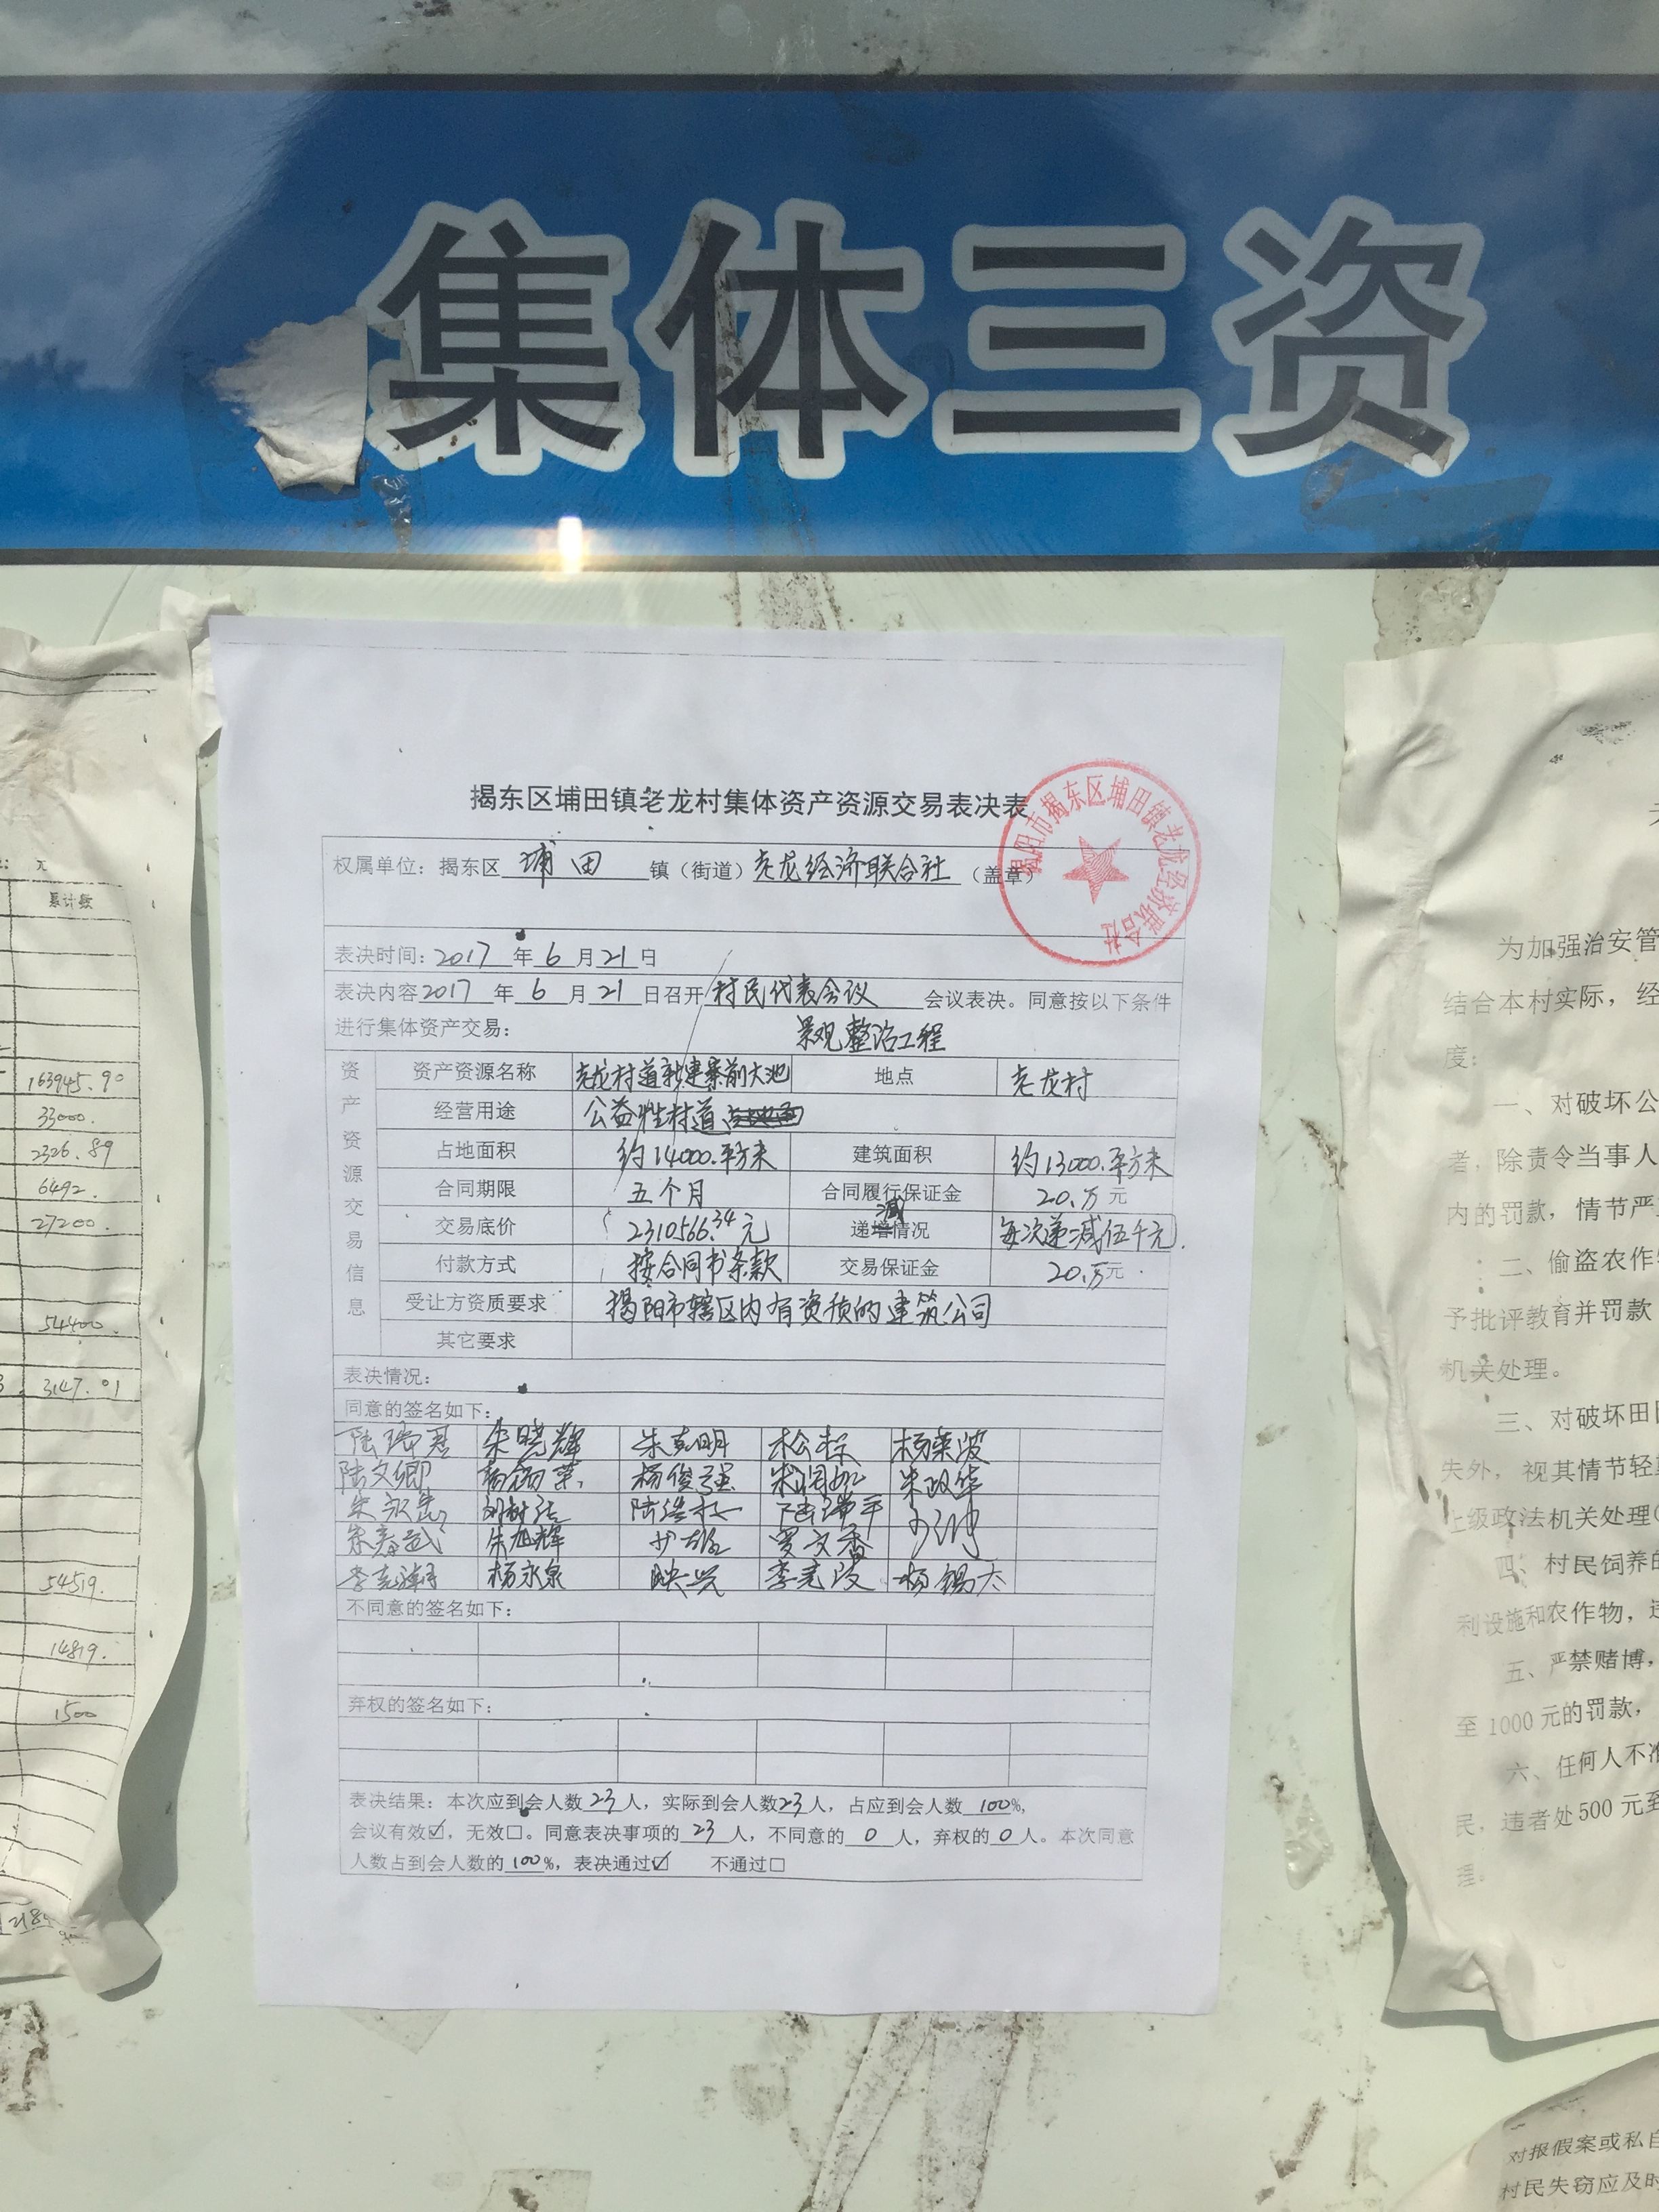 集体三资
揭东区埔田镇老龙村集体资产资源交易表决表
揭阳市揭东区埔田镇老龙经济联合社
权属单位：揭东区 埔田 镇（街道）老龙经济联合社（盖章）
表决时间：2017 年 6 月 21 日
表决内容 2017 年 6 月 21 日召开 村民代表会议 会议表决。同意按以下条件
进行集体资产交易：
景观整治工程
资产资源交易信息
资产资源名称 老龙村道新建寨前大池 地点 老龙村
经营用途 公益性村道
占地面积 约14000.平方米 建筑面积 约13000.平方米
合同期限 五个月 合同履行保证金 20.万元
交易底价 2310566.34元 递减情况 每次递减伍千元.
付款方式 按合同书条款 交易保证金 20.万元
受让方资质要求 揭阳市辖区内有资质的建筑公司
其它要求
表决情况：
同意的签名如下：
朱晓辉 朱克明 杨荣波
陆文卿 杨俊强 朱政华
朱旭辉 罗文香
杨永泉 映兴 李克波 杨锡大
不同意的签名如下：
弃权的签名如下：
表决结果：本次应到会人数 23 人，实际到会人数 23 人，占应到会人数 100%，
会议有效☑，无效□。同意表决事项的 23 人，不同意的 0 人，弃权的 0 人。本次同意
人数占到会人数的 100%，表决通过☑ 不通过□
元
累计数
163945.90
33000.
2326.89
6492.
27200.
54400.
3147.01
54519.
14819.
1500
为加强治安管
结合本村实际，经
度：
一、对破坏公
者，除责令当事人
内的罚款，情节严
二、偷盗农作
予批评教育并罚款
机关处理。
三、对破坏田
失外，视其情节轻
上级政法机关处理
四、村民饲养的
利设施和农作物，
五、严禁赌博，
至1000元的罚款，
六、任何人不准
民，违者处500元至
理。
对报假案或私自
村民失窃应及时